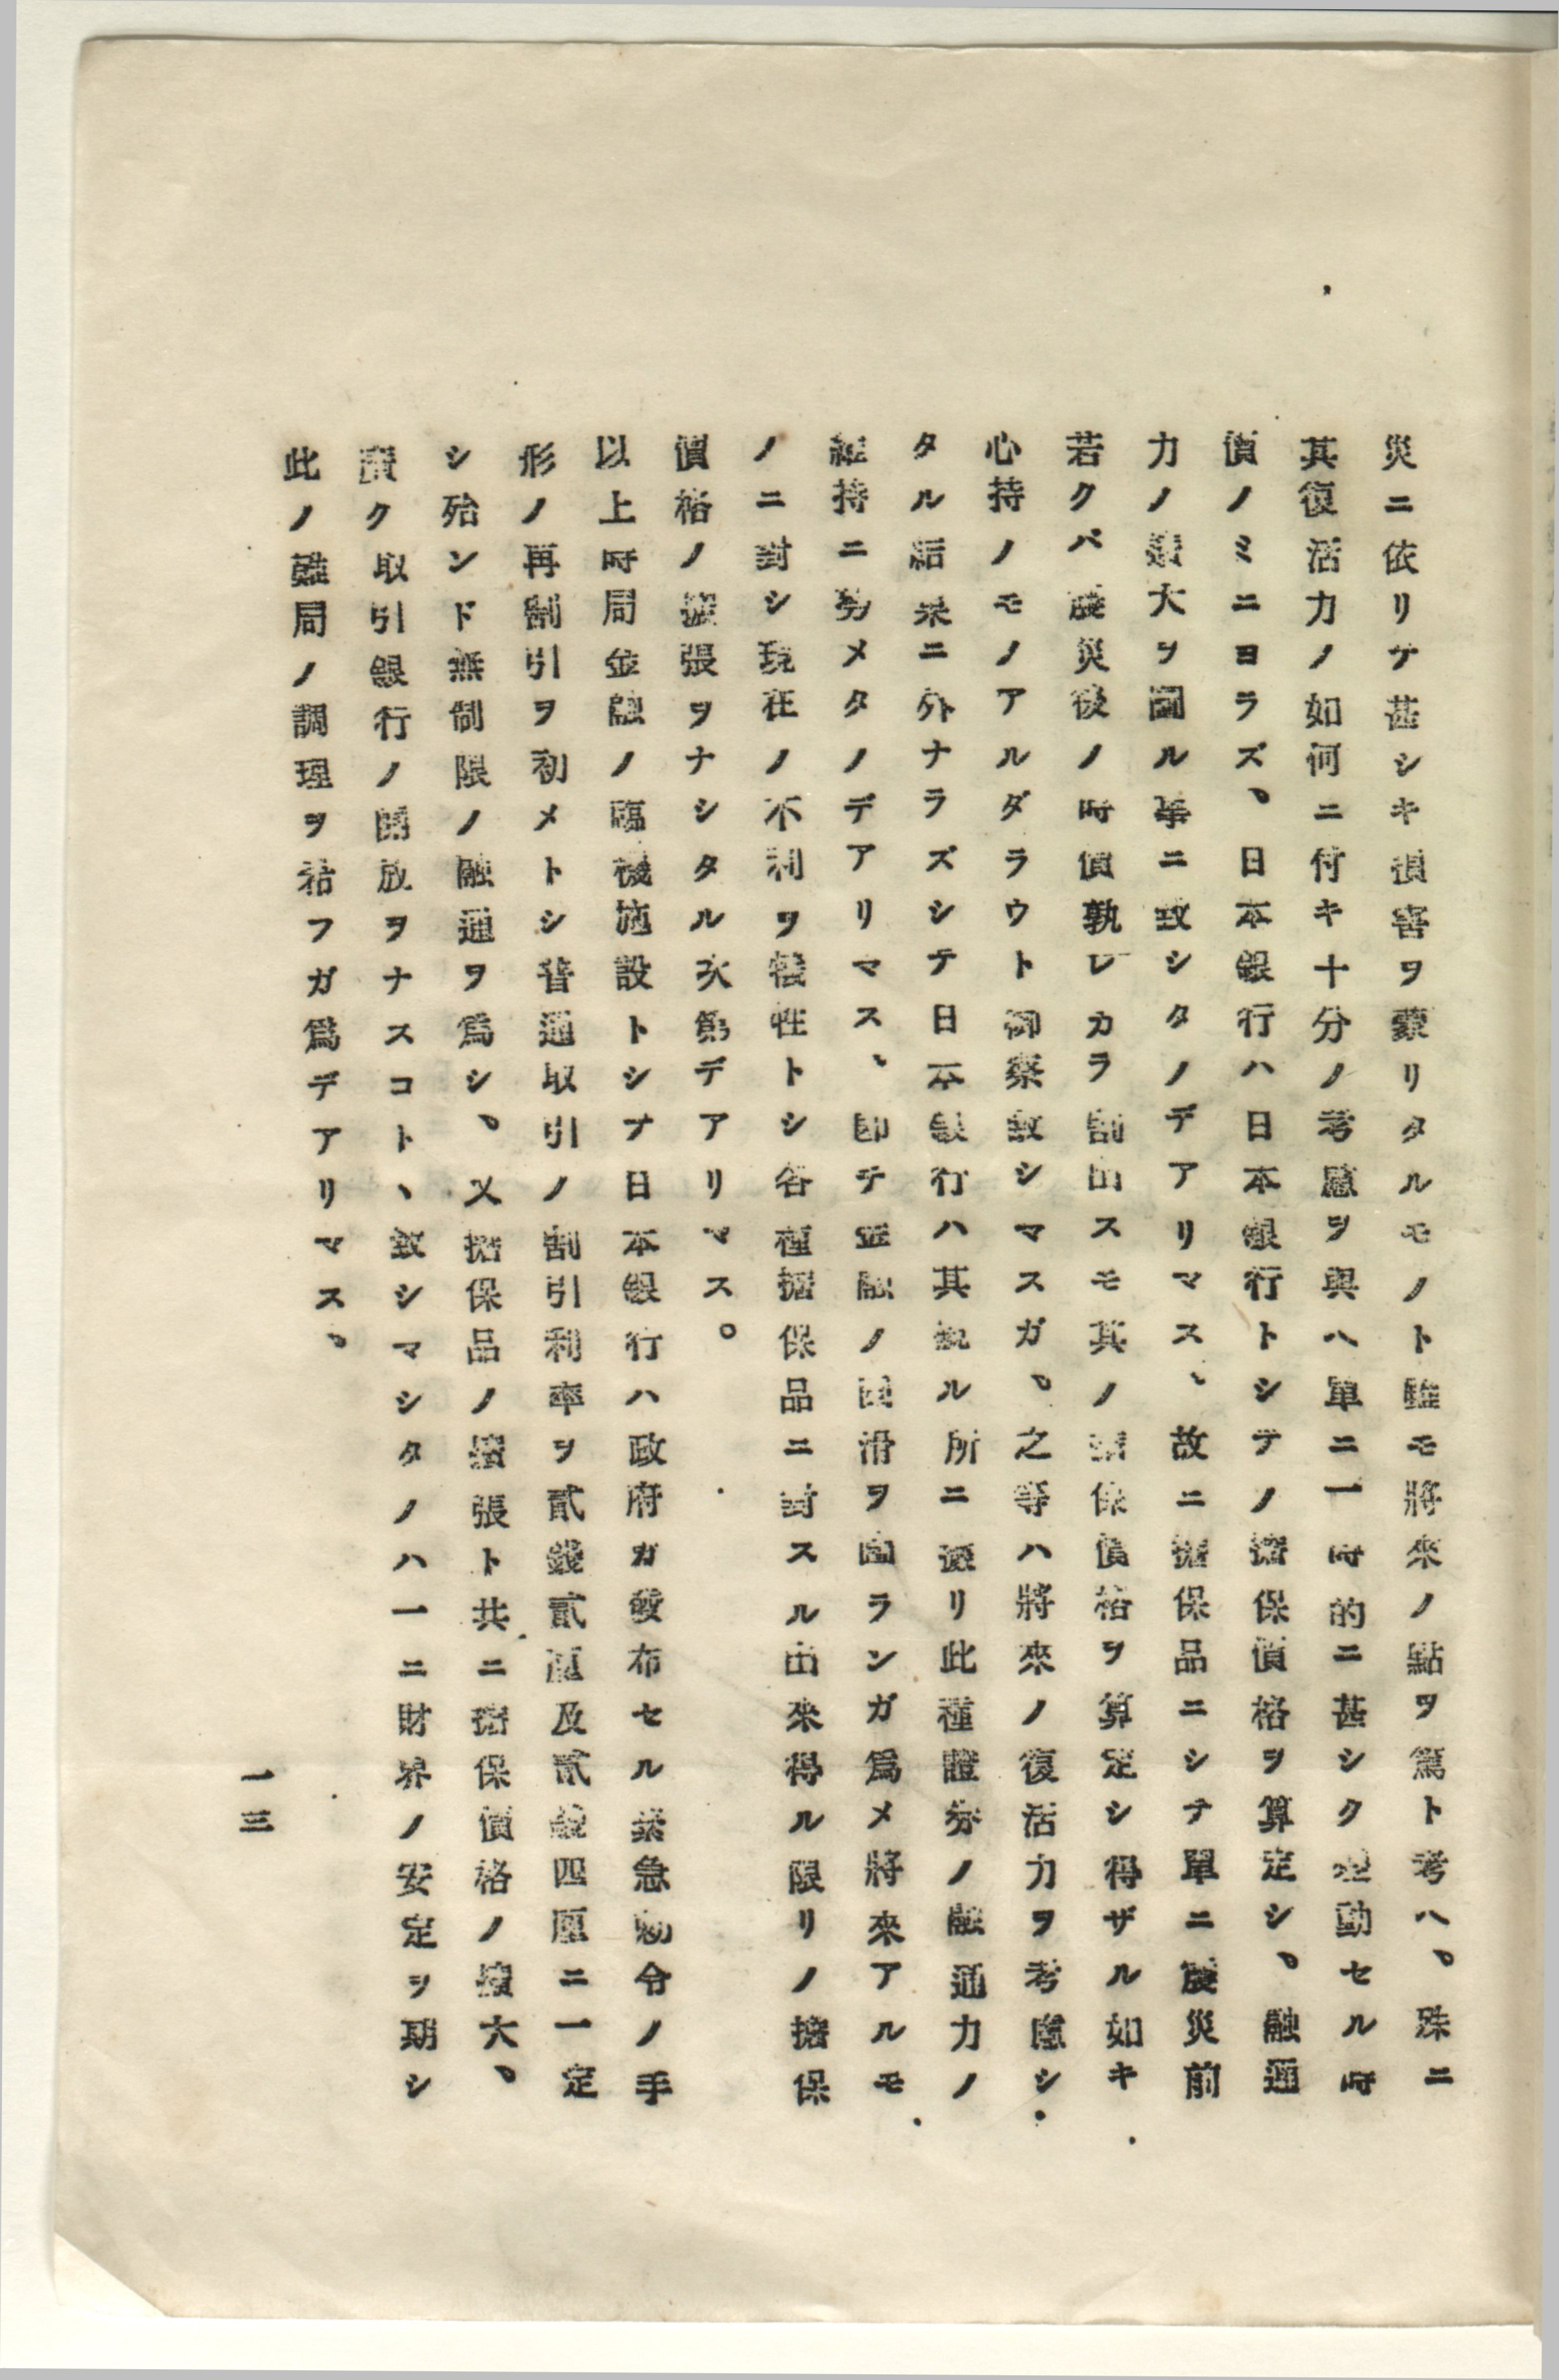 災ニ依リテ甚シキ損害ヲ蒙リタルモノト雖モ將來ノ點ヲ篤ト考ヘ、殊ニ
其復活力ノ如何ニ付キ十分ノ考慮ヲ與ヘ單ニ一時的ニ甚シク變動セル時
價ノミニヨラズ、日本銀行ハ日本銀行トシテノ擔保價格ヲ算定シ、融通
力ノ最大ヲ圖ル事ニ致シタノデアリマス、故ニ擔保品ニシテ單ニ震災前
若クバ震災後ノ時價孰レカラ割出スモ其ノ擔保價格ヲ算定シ得ザル如キ
心持ノモノアルダラウト御察致シマスガ、之等ハ將來ノ復活力ヲ考慮シ
タル結果ニ外ナラズシテ日本銀行ハ其視ル所ニ據リ此種證券ノ融通力ノ
維持ニ努メタノデアリマス、卽チ金融ノ圓滑ヲ圖ランガ爲メ將來アルモ
ノニ對シ現在ノ不利ヲ犧牲トシ各種擔保品ニ對スル出來得ル限リノ擔保
價格ノ擴張ヲナシタル次第デアリマス。
以上時局金融ノ臨機施設トシテ日本銀行ハ政府ガ發布セル緊急勅令ノ手
形ノ再割引ヲ初メトシ普通取引ノ割引利率ヲ貳錢貳厘及貳錢四厘ニ一定
シ殆ンド無制限ノ融通ヲ爲シ、又擔保品ノ擴張ト共ニ擔保價格ノ擴大、
廣ク取引銀行ノ開放ヲナスコト、致シマシタノハ一ニ財界ノ安定ヲ期シ
此ノ難局ノ調理ヲ祐フガ爲デアリマス、
一三